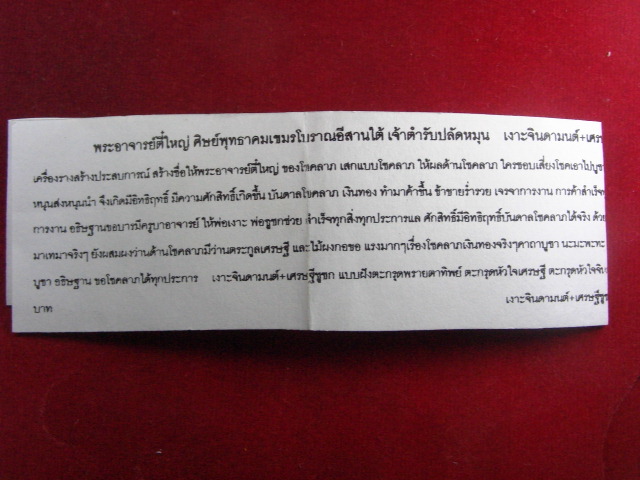 พระอาจารย์ตี๋ใหญ่ ศิษย์พุทธาคมเขมรโบราณอีสานใต้ เจ้าตำรับปลัดหมุน เงาะจินดามนต์+เศร
เครื่องรางสร้างประสบการณ์ สร้างชื่อให้พระอาจารย์ตี๋ใหญ่ ของโชคลาภ เสกแบบโชคลาภ ให้ผลด้านโชคลาภ ใครชอบเสี่ยงโชคเอาไปบูช
หนุนส่งหนุนนำ จึงเกิดมีอิทธิฤทธิ์ มีความศักสิทธิ์เกิดขึ้น บันดาลโชคลาภ เงินทอง ทำมาค้าขึ้น ข้าขายร่ำรวย เจรจาการงาน การค้าสำเร็จ
การงาน อธิษฐานขอบารมีครูบาอาจารย์ ให้พ่อเงาะ พ่อชูชกช่วย สำเร็จทุกสิ่งทุกประการแล ศักสิทธิ์มีอิทธิฤทธิ์บันดาลโชคลาภได้จริง ด้วย
มาเทมาจริงๆ ยังผสมผงว่านด้านโชคลาภมีว่านตระกูลเศรษฐี และไม้ผงกอขอ แรงมากๆเรื่องโชคลาภเงินทองจริงๆคาถาบูชา นะมะพะทะ
บูชา อธิษฐาน ขอโชคลาภได้ทุกประการ เงาะจินดามนต์+เศรษฐีชูชก แบบฝังตะกรุดพรายตาทิพย์ ตะกรุดหัวใจเศรษฐี ตะกรุดหัวใจจิน
เงาะจินดามนต์+เศรษฐีชูช
บาท